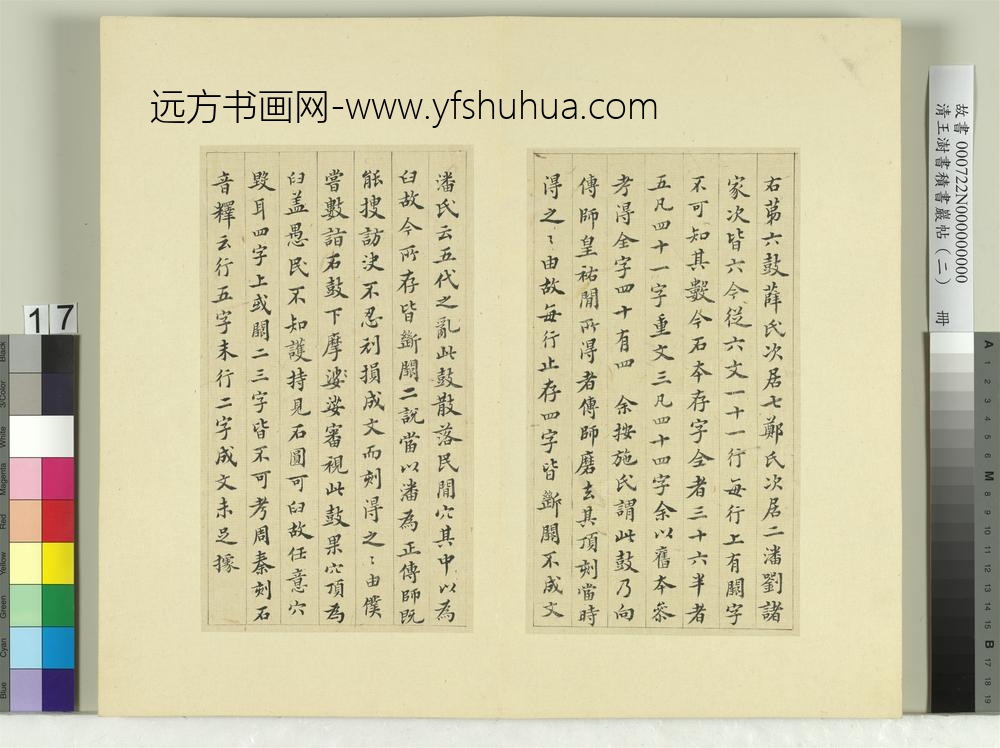 远方书画网-www.yfshuhua.com
右苐六鼓薛氏次居七鄭氏次居二潘劉諸
家次皆六今従六文一十一行每行上有闕字
不可知其數今石本存字全者三十六半者
五凡四十一字重文三凡四十四字余以舊本叅
考得全字四十有四 余按施氏謂此鼓乃向
傳師皇祐間所得者傳師磨去其頂刻當時
得之〻由故每行止存四字皆斷闕不成文
潘氏云五代之亂此鼓散落民間穴其中以為
臼故今所存皆斷闕二說當以潘為正傳師既
能搜訪決不忍刓損成文而刻得之〻由僕
嘗數詣石鼓下摩娑娑審視此鼓果穴頂為
臼盖愚民不知護持見石圓可臼故任意穴
毀耳四字上或闕二三字皆不可考周秦刻石
音釋云行五字末行二字成文未足據
故書 000722N000000000
清王澍書積書巖帖(二) 冊
17
Black
3/Color
White
Magenta
Red
Yellow
Green
Cyan
Blue
A 1 2 3 4 5 6 M 8 9 10 11 12 13 14 15 B 17 18 19